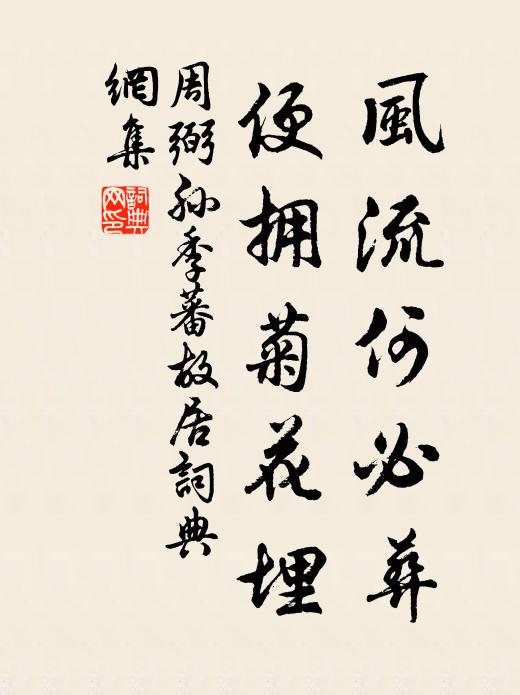 風流何必葬
便拥菊花埋
周弼孙季蕃故居詞典
網集
詞典網印